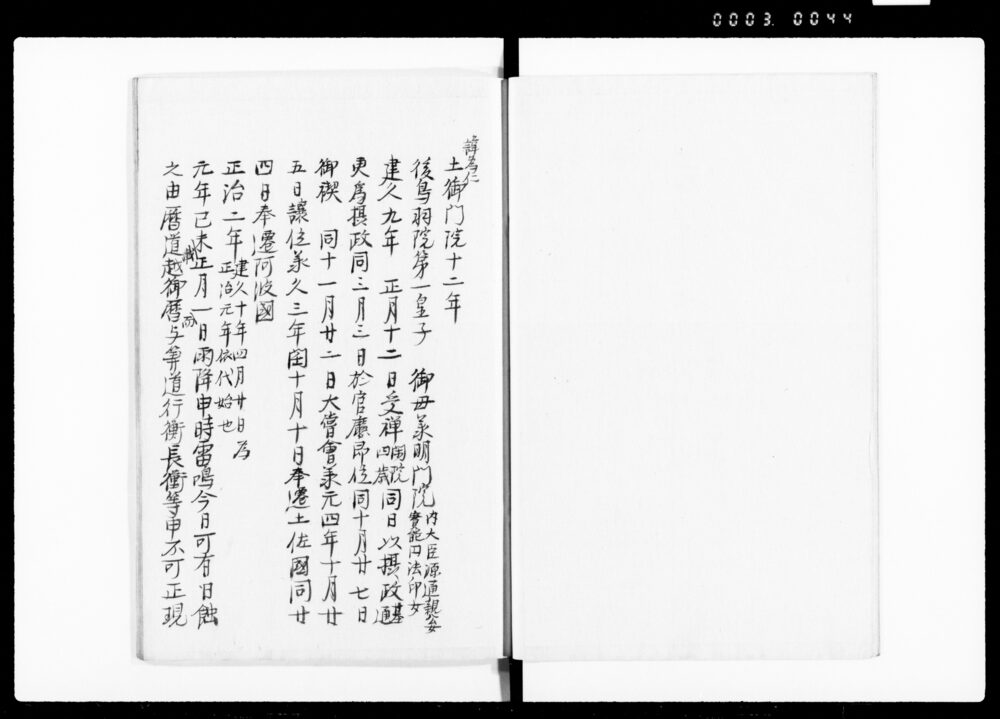 0003 0044
諱為仁
土御門院十二年
後鳥羽院第一皇子 御母羕明門院 内大臣源通親公女 實能円法印女
建久九年 正月十二日受禅 閑院 四歳 同日以摂政 基通
更爲摂政同三月三日於官廳即位同十月廿七日
御禊 同十一月廿二日大嘗會羕元四年十月廿
五日讓位羕久三年閏十月十日奉遷土佐國同廿
四日奉遷阿波國
正治二年 建久十年四月廿日為 正治元年依代始也
元年己未正月一日雨降申時雷鳴今日可有日蝕
之由暦道越御暦与等道行衡長衡等申不可正現